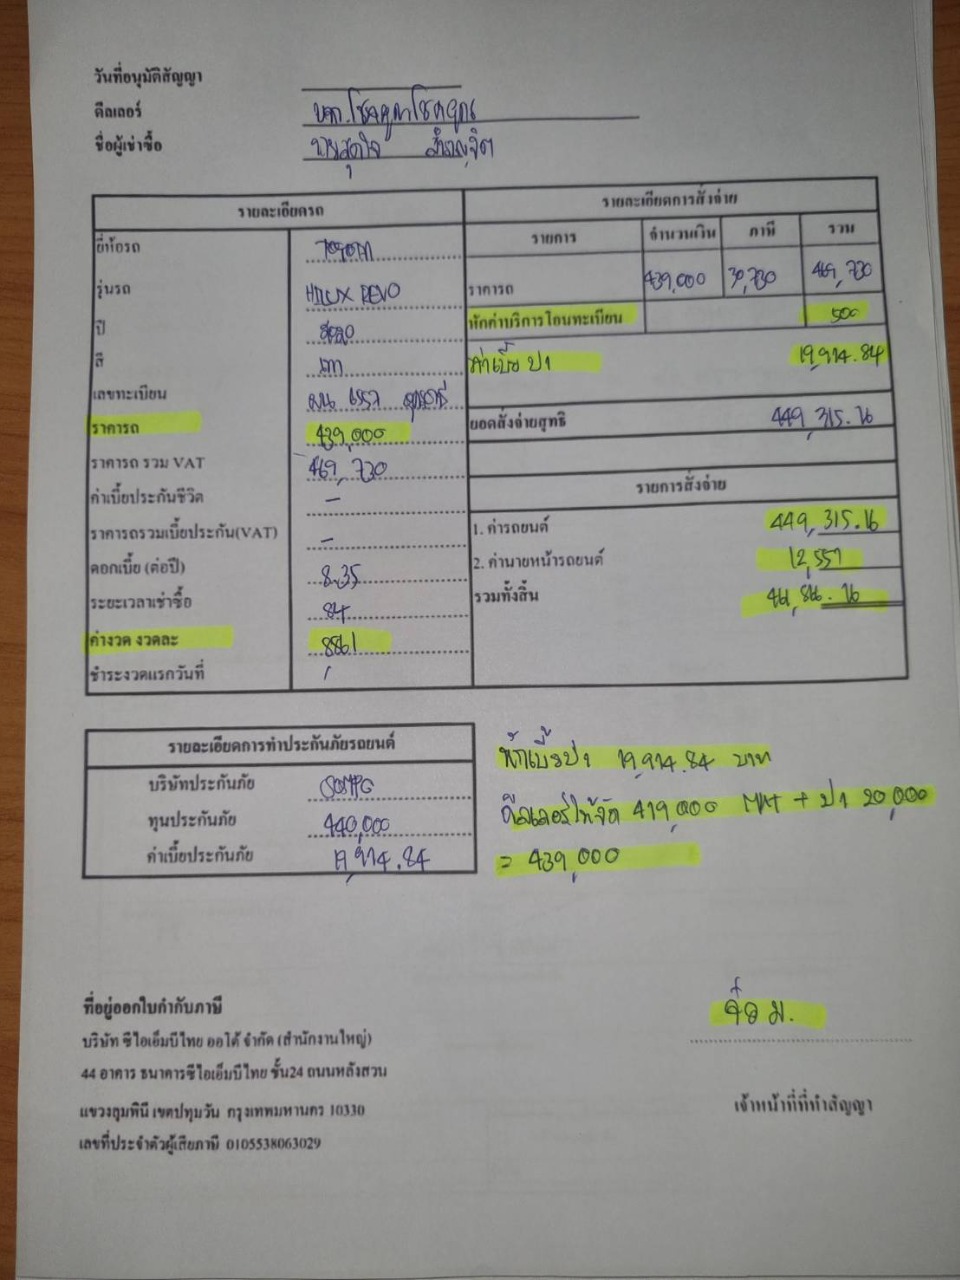 วันที่อนุมัติสัญญา
ดีลเลอร์ บจก.โชคคูณโชคคูณ
ชื่อผู้เช่าซื้อ นายสุดใจ
รายละเอียดรถ
ยี่ห้อรถ
รุ่นรถ HILUX REVO
ปี 2020
สี เทา
เลขทะเบียน
ราคารถ 439,000
ราคารถ รวม VAT 469,730
ค่าเบี้ยประกันชีวิต -
ราคารถรวมเบี้ยประกัน(VAT) -
ดอกเบี้ย (ต่อปี) 8.35
ระยะเวลาเช่าซื้อ 84
ค่างวด งวดละ 8861
ชำระงวดแรกวันที่ /
รายละเอียดการสั่งจ่าย
รายการ จำนวนเงิน ภาษี รวม
ราคารถ 439,000 30,730 469,730
หักค่าบริการโอนทะเบียน 500
ค่าเบี้ย ป1 19,914.84
ยอดสั่งจ่ายสุทธิ 449,315.16
รายการสั่งจ่าย
1. ค่ารถยนต์ 449,315.16
2. ค่านายหน้ารถยนต์ 12,551
รวมทั้งสิ้น
รายละเอียดการทำประกันภัยรถยนต์
บริษัทประกันภัย SOMPO
ทุนประกันภัย 440,000
ค่าเบี้ยประกันภัย 19,914.84
หักเบี้ยป1 19,914.84 บาท
ดีลเลอร์ให้จัด 419,000 + ป1 20,000
= 439,000
ที่อยู่ออกใบกำกับภาษี
บริษัท ซีไอเอ็มบีไทย ออโต้ จำกัด (สำนักงานใหญ่)
44 อาคาร ธนาคารซีไอเอ็มบีไทย ชั้น24 ถนนหลังสวน
แขวงลุมพินี เขตปทุมวัน กรุงเทพมหานคร 10330
เลขที่ประจำตัวผู้เสียภาษี 0105538063029
เจ้าหน้าที่ที่ทำสัญญา